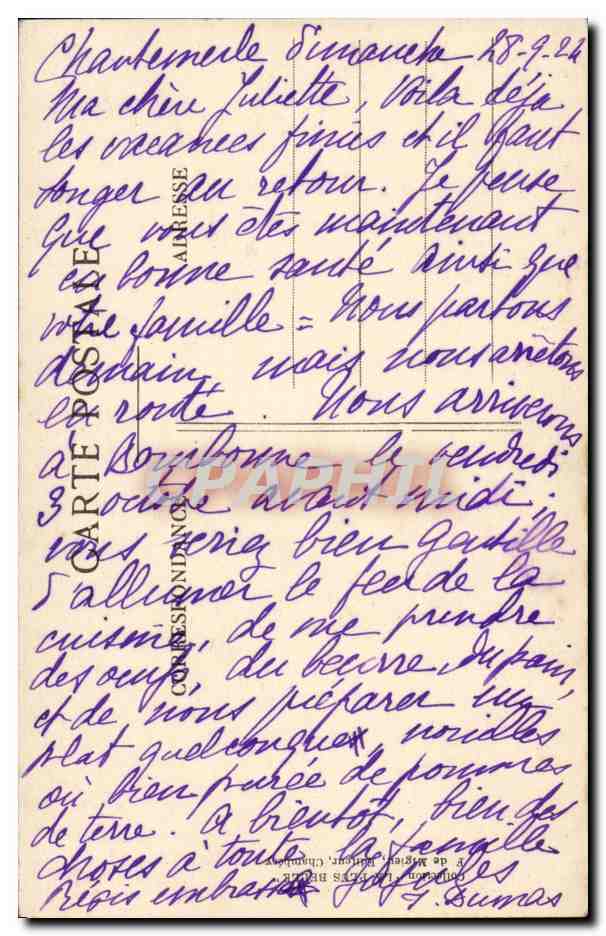 Chantemerle Dimanche 28-9-24
Ma chère Juliette, Voila déja
les vacances finies et il faut
songer au retour. Je pense
que vous êtes maintenant
en bonne santé ainsi que
votre famille = Nous partons
demain, mais nous arrêtons
en route. Nous arriverons
à Bombonne le vendredi
3 octobre avant midi;
vous seriez bien gentille
d'allumer le feu de la
cuisine, de me prendre
des oeufs, du beurre, du pain,
et de nous préparer un
plat quelconque, nouilles
où bien purée de pommes
de terre. A bientôt, bien des
choses à toute la famille
embrasse les
J. Dumas
CARTE POSTALE
CORRESPONDANCE
ADRESSE
Collection "LA PLUS BELLE"
F. de Miglieu, Editeur, Chambéry
CPAPHIL